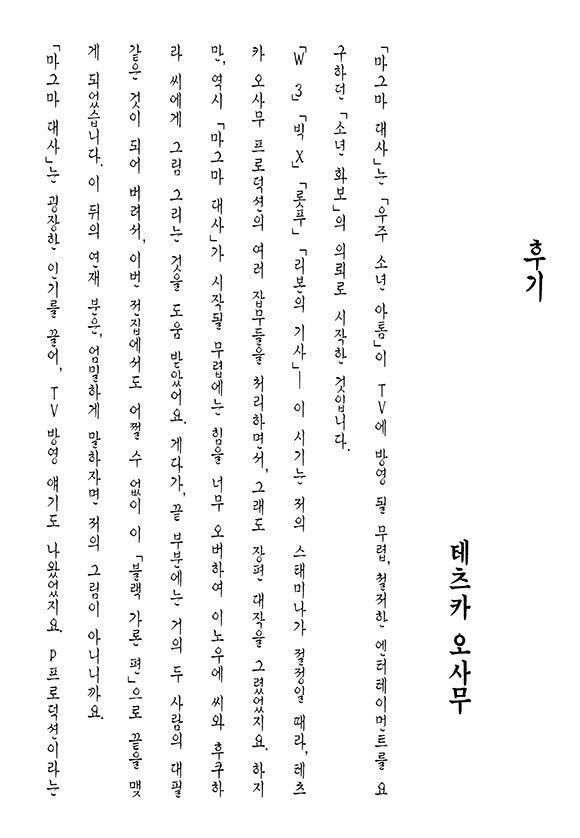 후기
테츠카 오사무
「마그마 대사」는 「우주 소년 아톰」이 TV에 방영 될 무렵, 철저한 엔터테이먼트를 요
구하던 「소년 화보」의 의뢰로 시작한 것입니다.
「W 3」 「빅 X」 「롯푸」 「리본의 기사」― 이 시기는 저의 스태미나가 절정일 때라, 테츠
카 오사무 프로덕션의 여러 잡무들을 처리하면서, 그래도 장편 대작을 그렸었지요. 하지
만, 역시 「마그마 대사」가 시작될 무렵에는 힘을 너무 오버하여 이노우에 씨와 후쿠하
라 씨에게 그림 그리는 것을 도움 받았어요. 게다가, 끝 부분에는 거의 두 사람의 대필
같은 것이 되어 버려서, 이번 전집에서도 어쩔 수 없이 이 「블랙 가론 편」으로 끝을 맺
게 되었습니다. 이 뒤의 연재 분은, 엄밀하게 말하자면 저의 그림이 아니니까요.
「마그마 대사」는 굉장한 인기를 끌어, TV 방영 얘기도 나왔었지요. P프로덕션이라는